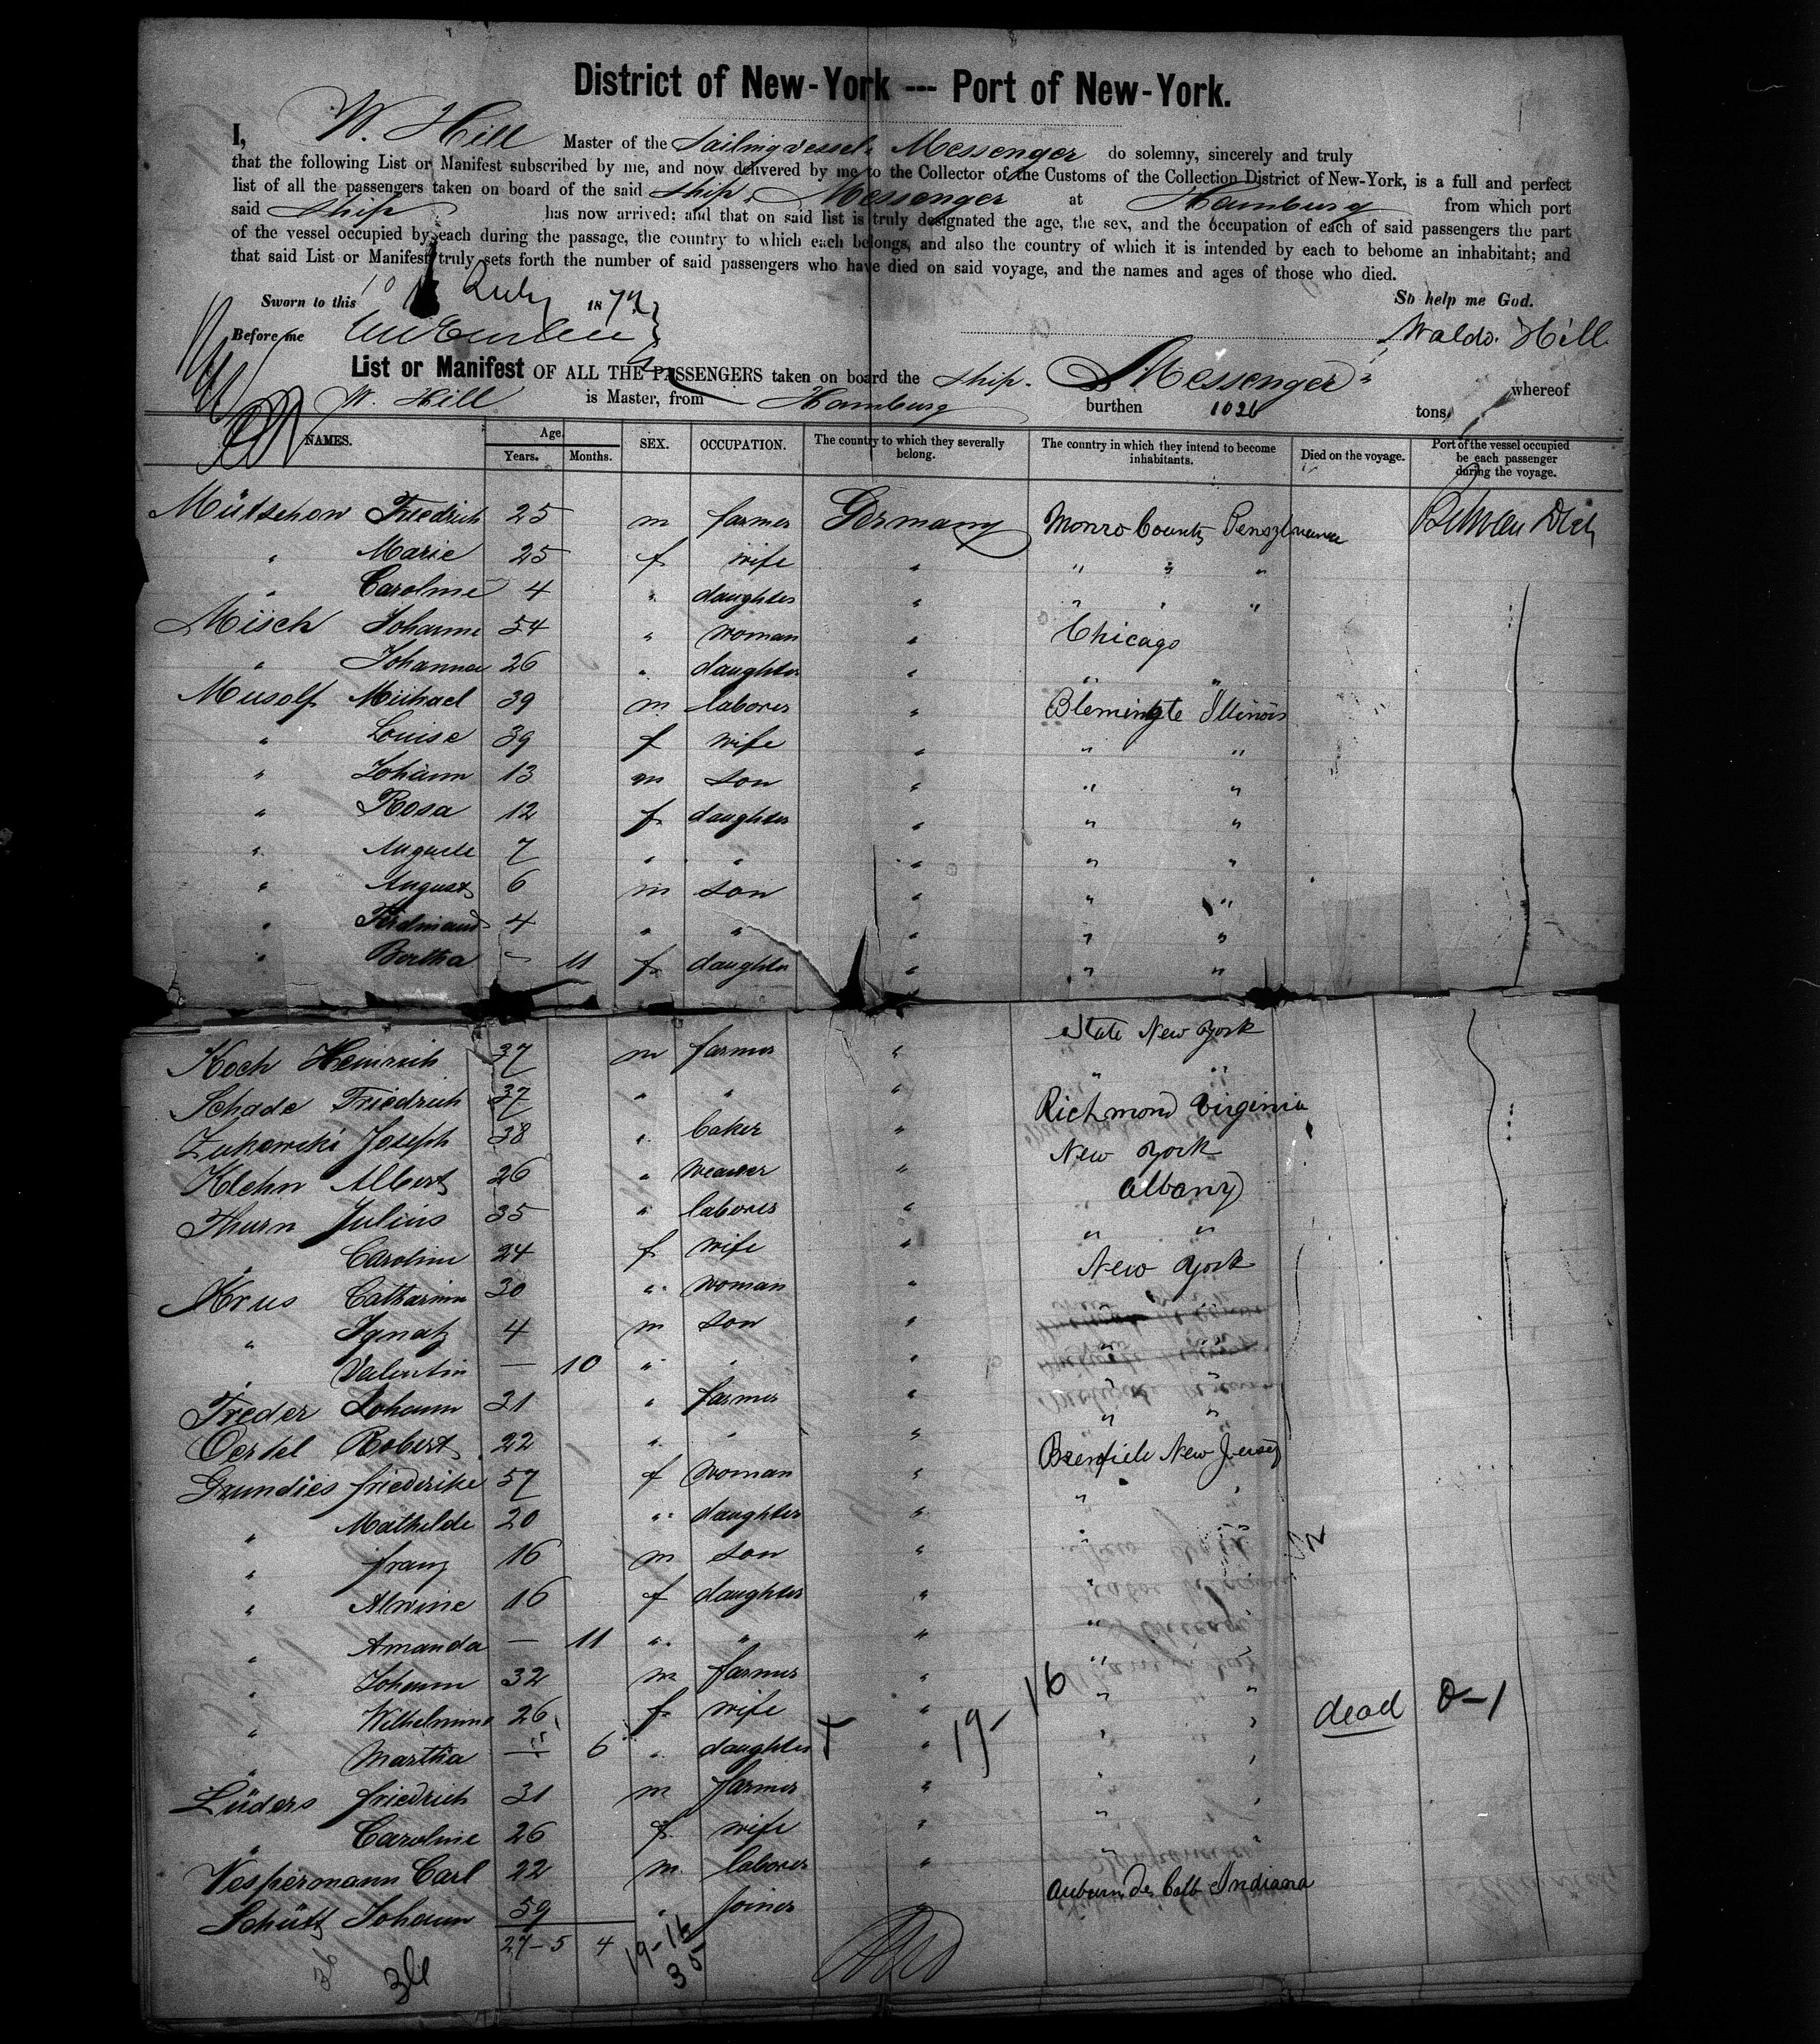 District of New-York --- Port of New-York.
I, W. Hill Master of the Sailingvessel Messenger do solemny, sincerely and truly
that the following List or Manifest subscribed by me, and now delivered by me to the Collector of the Customs of the Collection District of New-York, is a full and perfect
list of all the passengers taken on board of the said ship Messenger at Hamburg from which port
said ship has now arrived: and that on said list is truly designated the age, the sex, and the occupation of each of said passengers the part
of the vessel occupied by each during the passage, the country to which each belongs, and also the country of which it is intended by each to bebome an inhabitant; and
that said List or Manifest truly sets forth the number of said passengers who have died on said voyage, and the names and ages of those who died.
Sworn to this 10 July 187 So help me God.
Before me Waldo. Hill
List or Manifest OF ALL THE PASSENGERS taken on board the ship. Messenger whereof
W. Hill is Master, from Hamburg burthen 1026 tons
NAMES. Age. Years. Months. SEX. OCCUPATION. The country to which they severally belong. The country in which they intend to become inhabitants. Died on the voyage. Port of the vessel occupied be each passenger during the voyage.
Mütschow Friedrich 25 m farmer Germany Monro County Pensylvania Between Deck
" Marie 25 f wife " " " "
" Caroline 4 " daughter " " " "
Misch Johanne 54 " woman " Chicago
" Johanna 26 " daughter " " "
Musolf Michael 39 m laborer " Blemingte Illinois
" Louise 39 f wife " " "
" Johann 13 m son " " "
" Rosa 12 f daughter " " "
" Auguste 7 " " " " "
" August 6 m son " " "
" Ferdinand 4 " " " " "
" Bertha — 11 f daughter " " "
Koch Heinrich 37 m farmer " State New York
Schade Friedrich 37 " " " " "
Zukowski Joseph 38 " baker " Richmond Virginia
Klehn Albert 26 " weaver " New York
Thurn Julius 35 " laborer " Albany
" Caroline 24 f wife " " "
Krus Catharina 30 " woman " New York
" Ignatz 4 m son " "
" Valentin — 10 " " " "
Treder Johann 31 " farmer " " "
Oertel Robert 22 " " " " "
Grundies Friederike 57 f woman " Brenfiele New Jersey
" Mathilde 20 " daughter " " "
" Franz 16 m son " " "
" Alwine 16 f daughter " "
" Amanda — 11 " " " "
" Johann 32 m farmer " " "
" Wilhelmine 26 f wife " " "
" Martha — 6 " daughter + " 19-16 " dead 0-1
Lüders Friedrich 31 m farmer " " "
" Caroline 26 f wife " "
Vespermann Carl 22 m laborer " " "
Schütt Johann 59 " joiner " Auburn De Calb Indiana
27-5 4 19-16
36 35